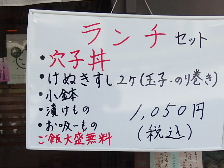 ランチセット
・穴子丼
・けぬきすし2ヶ(玉子・のり巻き)
・小鉢
・漬けもの
・お吸いもの
ご飯大盛無料
1,050円
(税込)